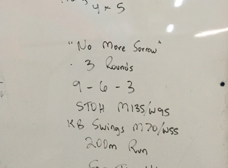 4 x 5
"No More Sorrow"
· 3 Rounds
9 - 6 - 3
STOH M135/W95
KB Swings M70/W55
200m Run